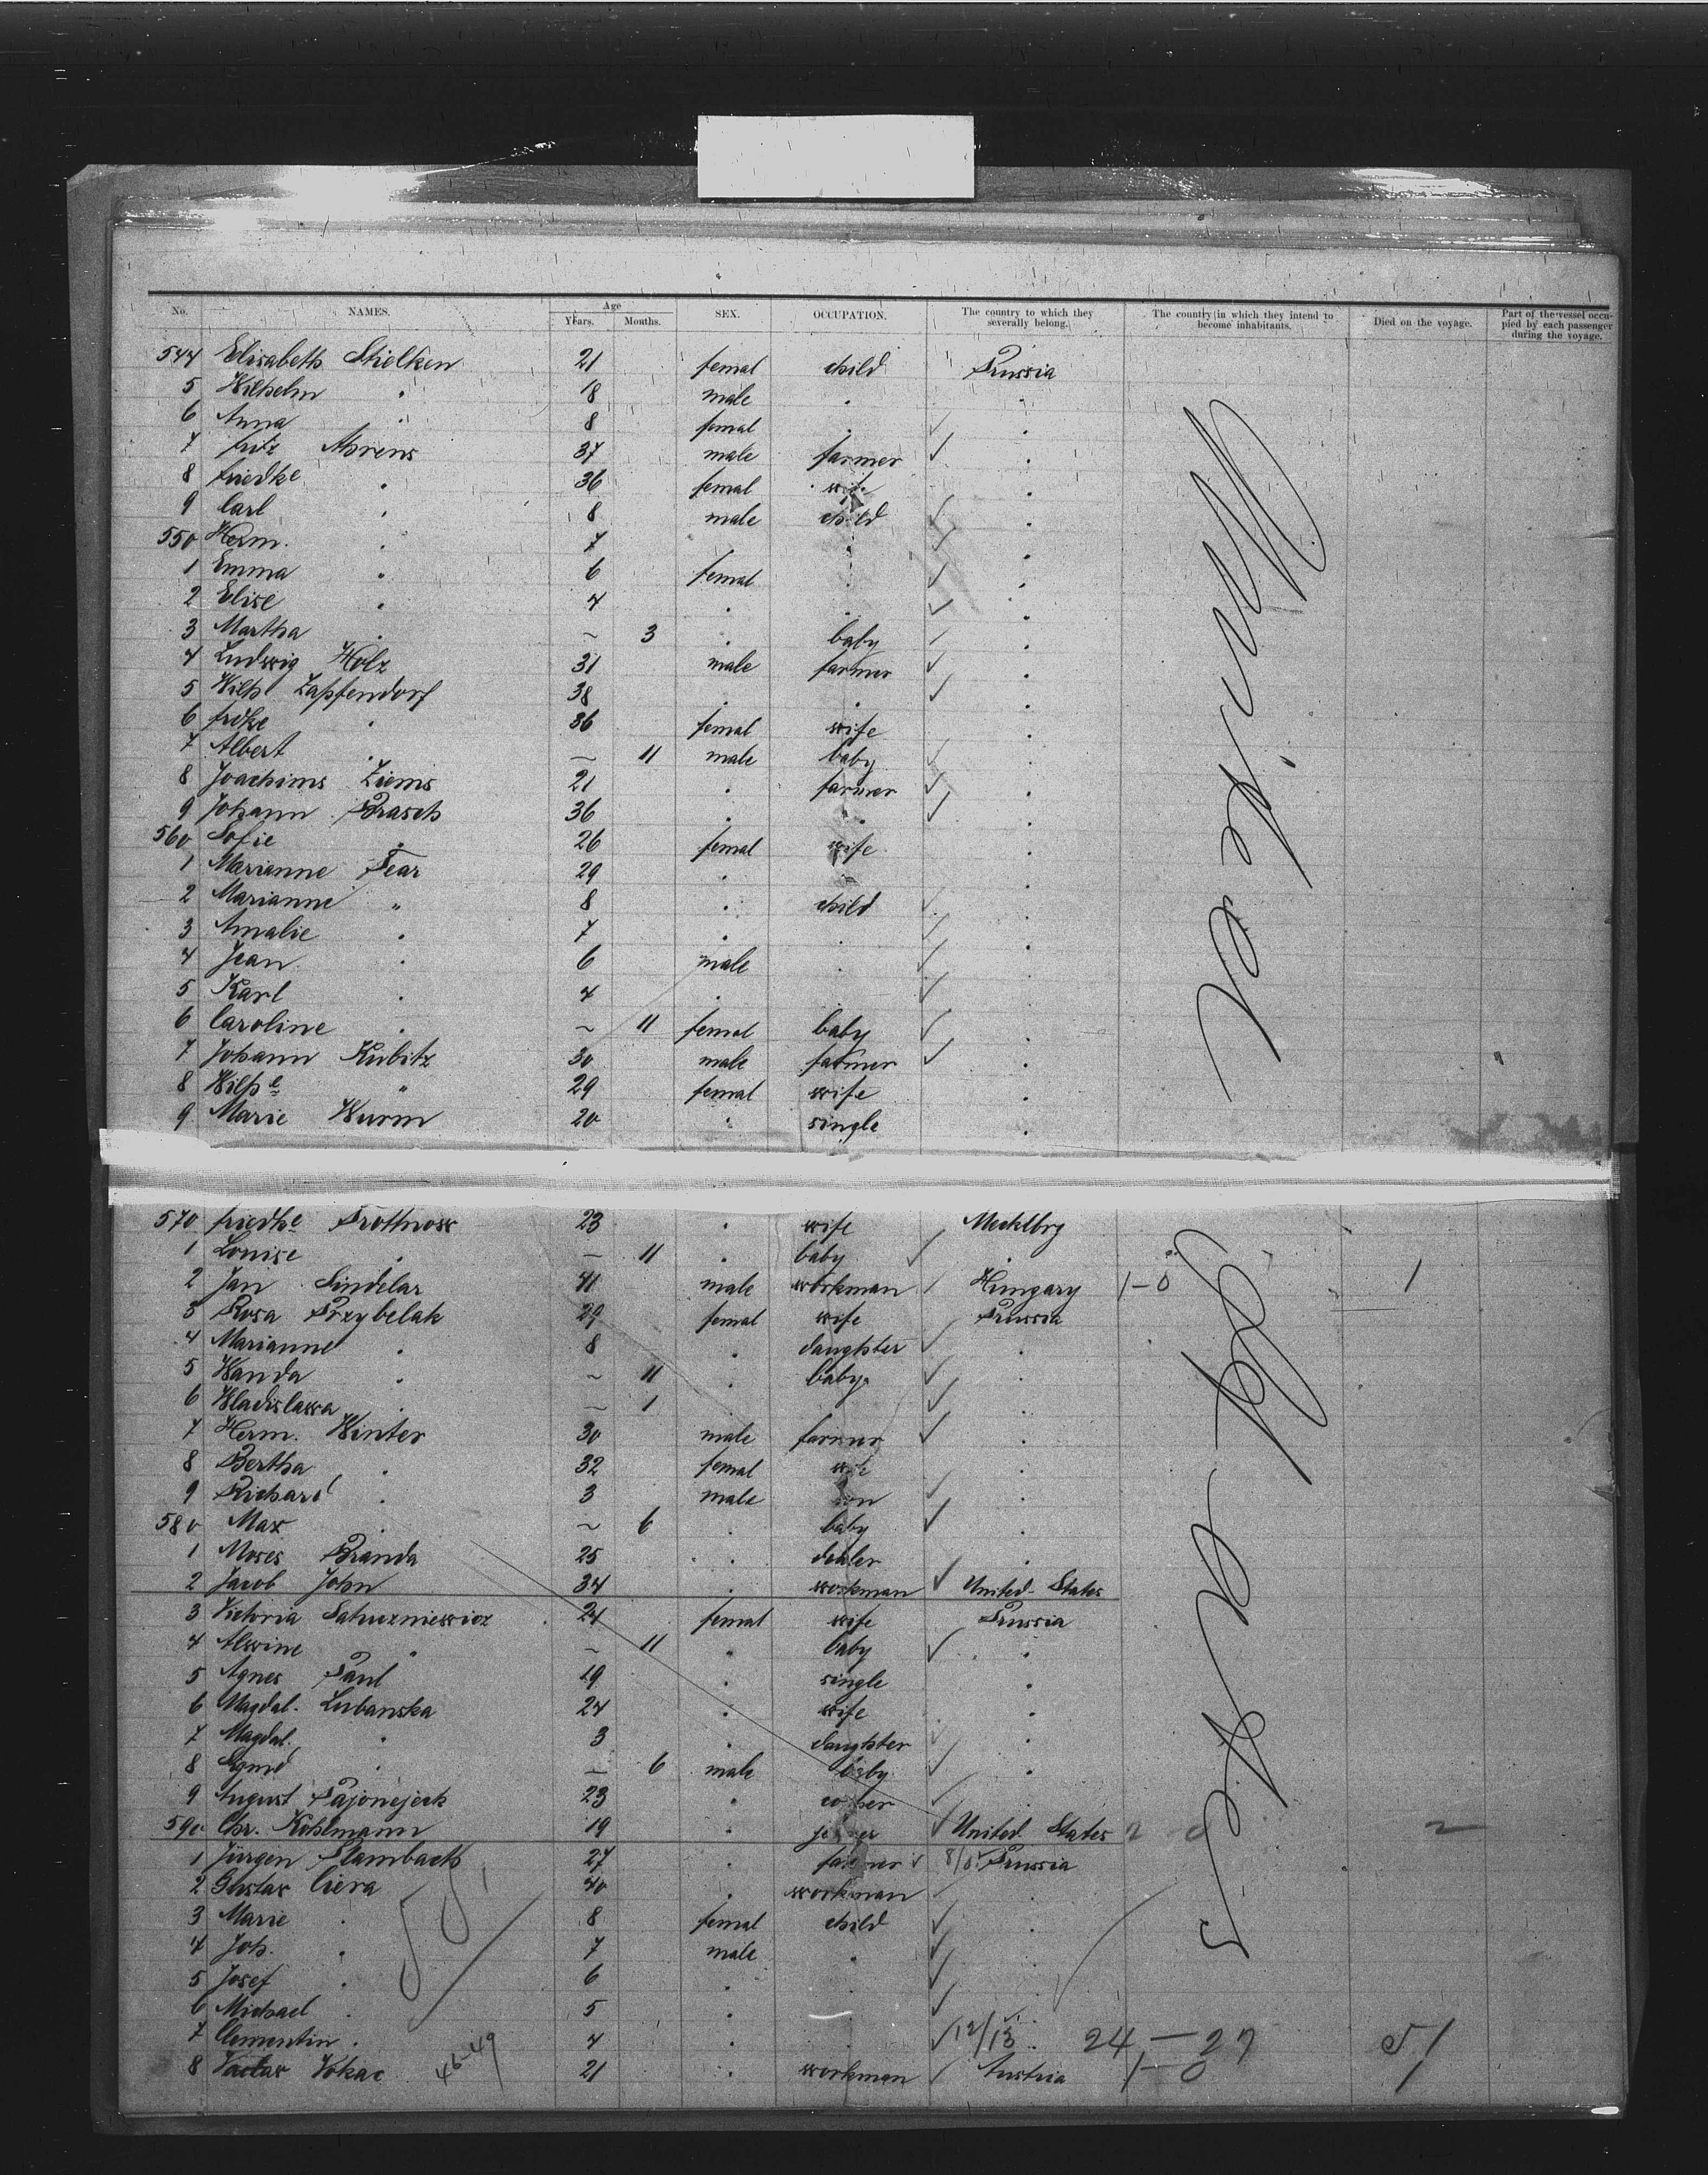 No. NAMES. Age Years. Months. SEX. OCCUPATION. The country to which they severally belong. The country in which they intend to become inhabitants. Died on the voyage. Part of the vessel occupied by each passenger during the voyage.
544 Elisabeth Stielken 21 femal child Prussia
5 Wilhelm " 18 male " "
6 Anna " 8 femal " "
7 Fritz Ahrens 37 male farmer "
8 Friedke " 36 femal wife "
9 Carl " 8 male child "
550 Herm. " 7 " "
1 Emma " 6 femal " "
2 Elise " 4 " " "
3 Martha " ~ 3 " baby "
4 Ludwig Holz 31 male farmer "
5 Wilh Zapfendorf 38 " " "
6 Frdke " 36 femal wife "
7 Albert " — 11 male baby "
8 Joachims Ziems 21 " farmer "
9 Johann Brasch 36 " " "
560 Sofie " 26 femal wife "
1 Marianne Fear 29 " " "
2 Marianne " 8 " child "
3 Amalie " 7 " " "
4 Jean " 6 male " "
5 Karl " 4 " " "
6 Caroline " ~ 11 femal baby "
7 Johann Kubitz 30 male farmer "
8 Wilhe " 29 femal wife "
9 Marie Wurm 20 " single "
570 Friedke Prothnow 23 " wife Mecklbrg
1 Louise " — 11 " baby "
2 Jan Sindelar 41 male workman Hungary 1-0 1
3 Rosa Przybelak 29 femal wife Prussia
4 Marianne " 8 " daughter "
5 Wanda " ~ 11 " baby "
6 Wladislawa " — 1 " " "
7 Herm. Winter 30 male farmer "
8 Bertha " 32 femal wife "
9 Richard " 3 male son "
580 Max " ~ 6 " baby "
1 Moses Branda 25 " dealer "
2 Jacob John 34 " workman United States
3 Victoria 24 femal wife Prussia
4 Alwine " ~ 11 " baby "
5 Agnes Paul 19 " single "
6 Magdal. Lubanska 24 " wife "
7 Magdal. " 3 " daughter "
8 " — 6 male baby "
9 August Pajonejeck 23 " "
590 Chr. Kohlmann 19 " joiner United States 2 0 2
1 Jürgen Slambach 27 " farmer 8/0 Prussia
2 Gustav Ciera 40 " workman "
3 Marie " 8 femal child "
4 Joh. " 7 male " "
5 Josef " 6 " " "
6 Michael " 5 " " "
7 Clementin " 4 " " 12/13 24 — 27 51
8 Vaclav Vokac 46-49 21 " workman Austria 1-0 1